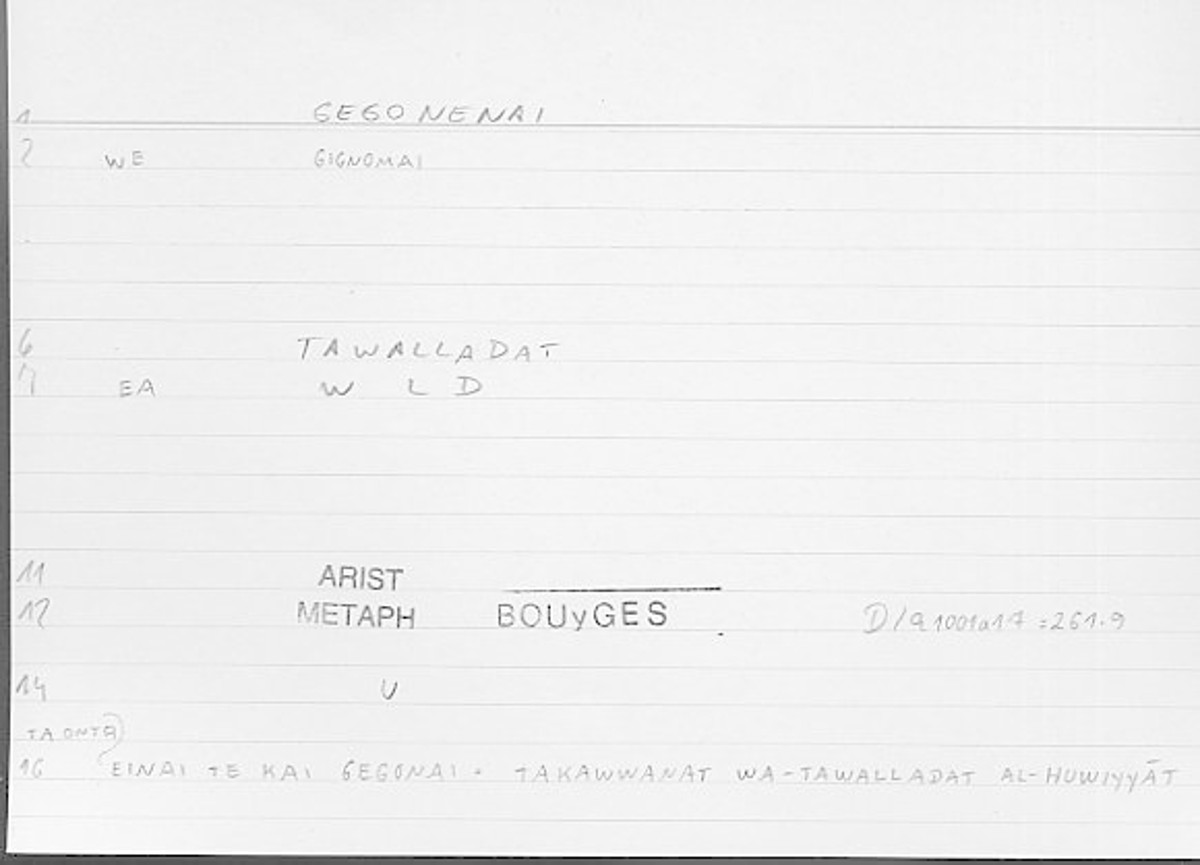 1 GEGONENAI
2 WE GIGNOMAI
6 TAWALLADAT
7 EA W L D
11 ARIST
12 METAPH BOUyGES D/9 1001a17 = 261.9
14 U
TA ONTA
16 EINAI TE KAI GEGONAI. TAKAWWANAT WA-TAWALLADAT AL-HUWIYYĀT